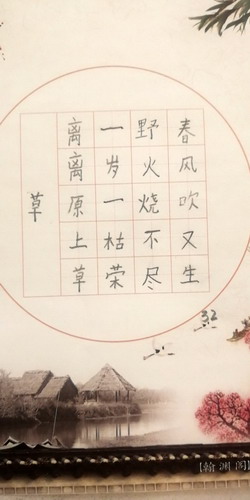 草
离离原上草
一岁一枯荣
野火烧不尽
春风吹又生
[翰渊阁]